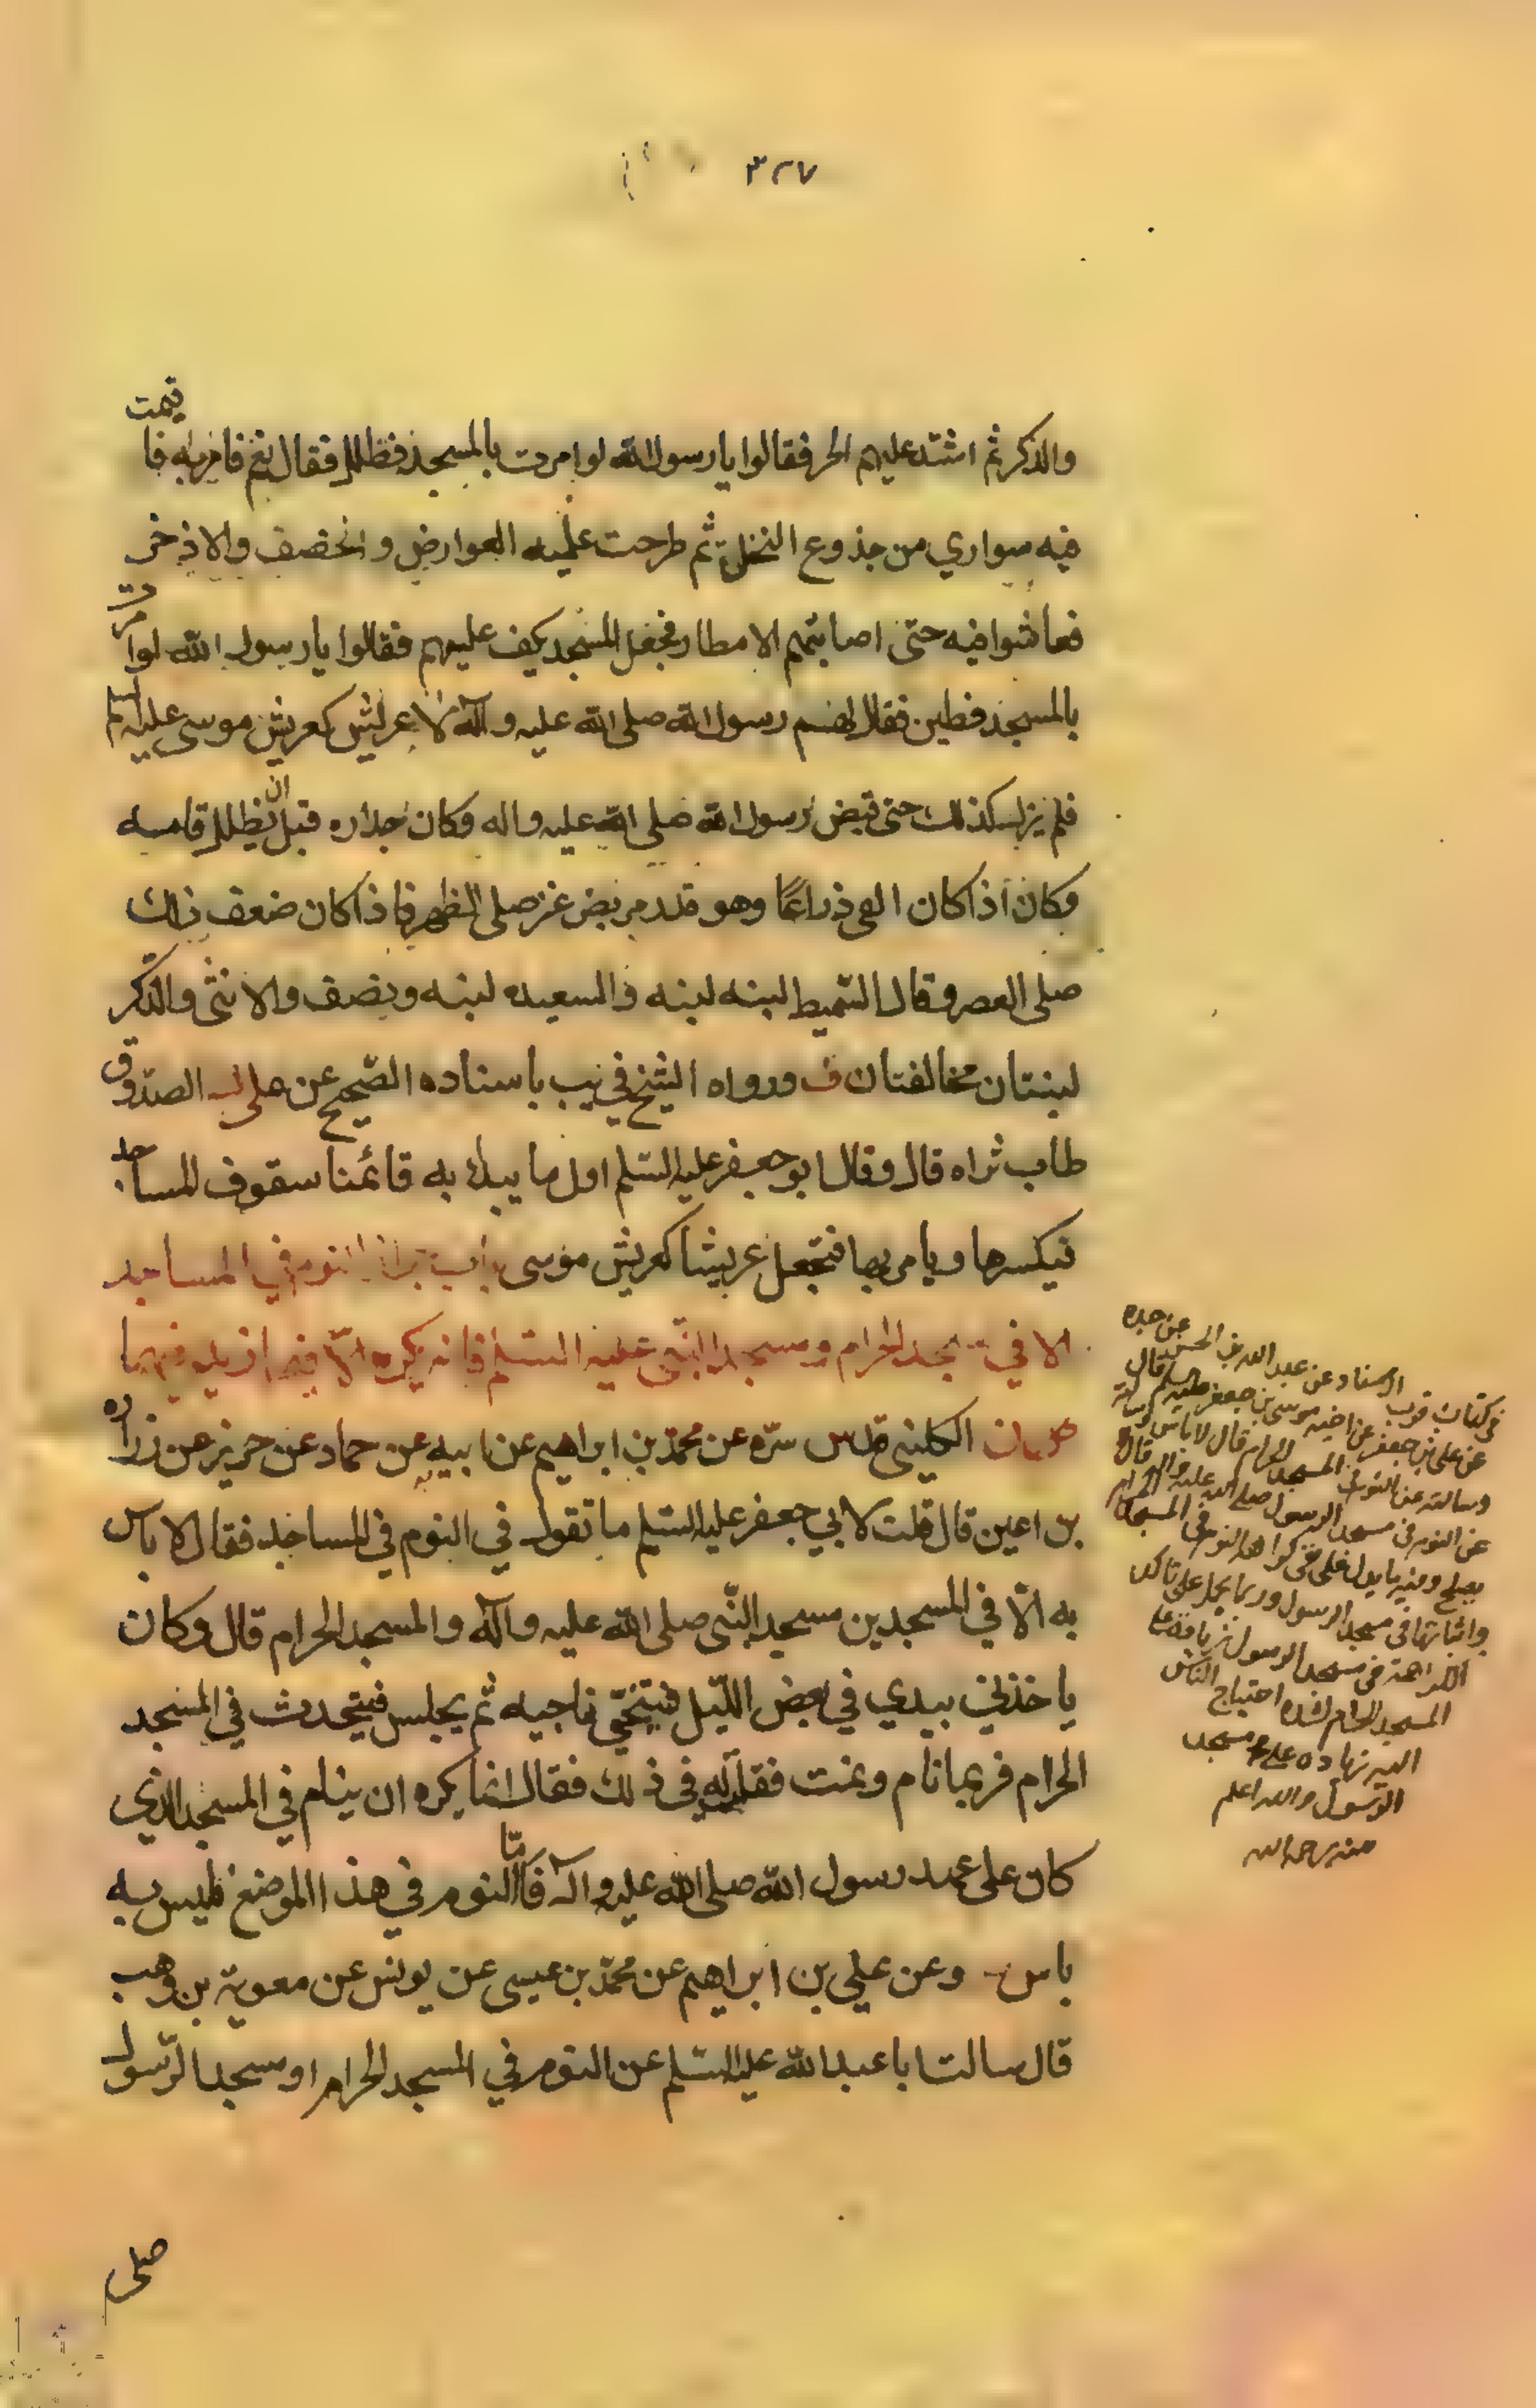 ٣٢٧
والذكر ثم اشتد عليهم الحر فقالوا يا رسول الله لو امرت بالمسجد فظلل فقال نعم فامر به فاقيمت
فيه سواري من جذوع النخل ثم طرحت عليه العوارض والخصف والاذخر
فعاشوا فيه حتى اصابتهم الامطار فجعل المسجد يكف عليهم فقالوا يا رسول الله لو امرت
بالمسجد فطين فقال لهم رسول الله صلى الله عليه وآله لا عريش كعريش موسى عليه السلم
فلم يزل كذلك حتى قبض رسول الله صلى الله عليه واله وكان جداره قبل ان يظلل قامه
وكان اذا كان الفئ ذراعًا وهو قدر مربض عنز صلى الظهر فاذا كان ضعف ذلك
صلى العصر وقال السميط لبنه لبنه والسعيده لبنه ونصف والانثى والذكر
لبنتان مخالفتان ف ورواه الشيخ في يب باسناده الصحيح عن علي الصدوق
طاب ثراه قال وقال ابو جعفر عليه السلم اول ما يبدا به قائمنا سقوف المساجد
فيكسرها ويامر بها فتجعل عريشا كعريش موسى باب النوم في المساجد
الا في مسجد الحرام ومسجد النبي عليه السلم فانه يكره الا فيما ازيد فيهما
الكليني قدس سره عن محمد بن ابراهيم عن ابيه عن حماد عن حريز عن زراره
بن اعين قال قلت لابي جعفر عليه السلم ما تقول في النوم في المساجد فقال لا باس
به الا في المسجدين مسجد النبي صلى الله عليه وآله والمسجد الحرام قال وكان
ياخذني بيدي في بعض الليل فيتنحى ناحيه ثم يجلس فيتحدث في المسجد
الحرام فربما نام ونمت فقلت له في ذلك فقال انما يكره ان ينام في المسجد الذي
كان على عهد رسول الله صلى الله عليه وآله فاما النوم في هذا الموضع فليس به
باس وعن علي بن ابراهيم عن محمد بن عيسى عن يونس عن معوية بن وهب
قال سالت ابا عبد الله عليه السلم عن النوم في المسجد الحرام او مسجد الرسول
صلى
في كتاب قرب الاسناد عن عبد الله بن الحسن عن جده
عن علي بن جعفر عن اخيه موسى بن جعفر عليه السلم قال
وسالته عن النوم في المسجد الحرام قال لا باس وسالته
عن النوم في مسجد الرسول صلى الله عليه واله قال لا
يصلح ومنه ما يدل على نفي كراهة النوم في المسجد الحرام
واثباتها في مسجد الرسول وربما يحمل على تاكد
الكراهة في مسجد الرسول زيادة على
المسجد الحرام لشدة احتياج الناس
اليه زيادة على مسجد
الرسول والله اعلم
منه رحمه الله